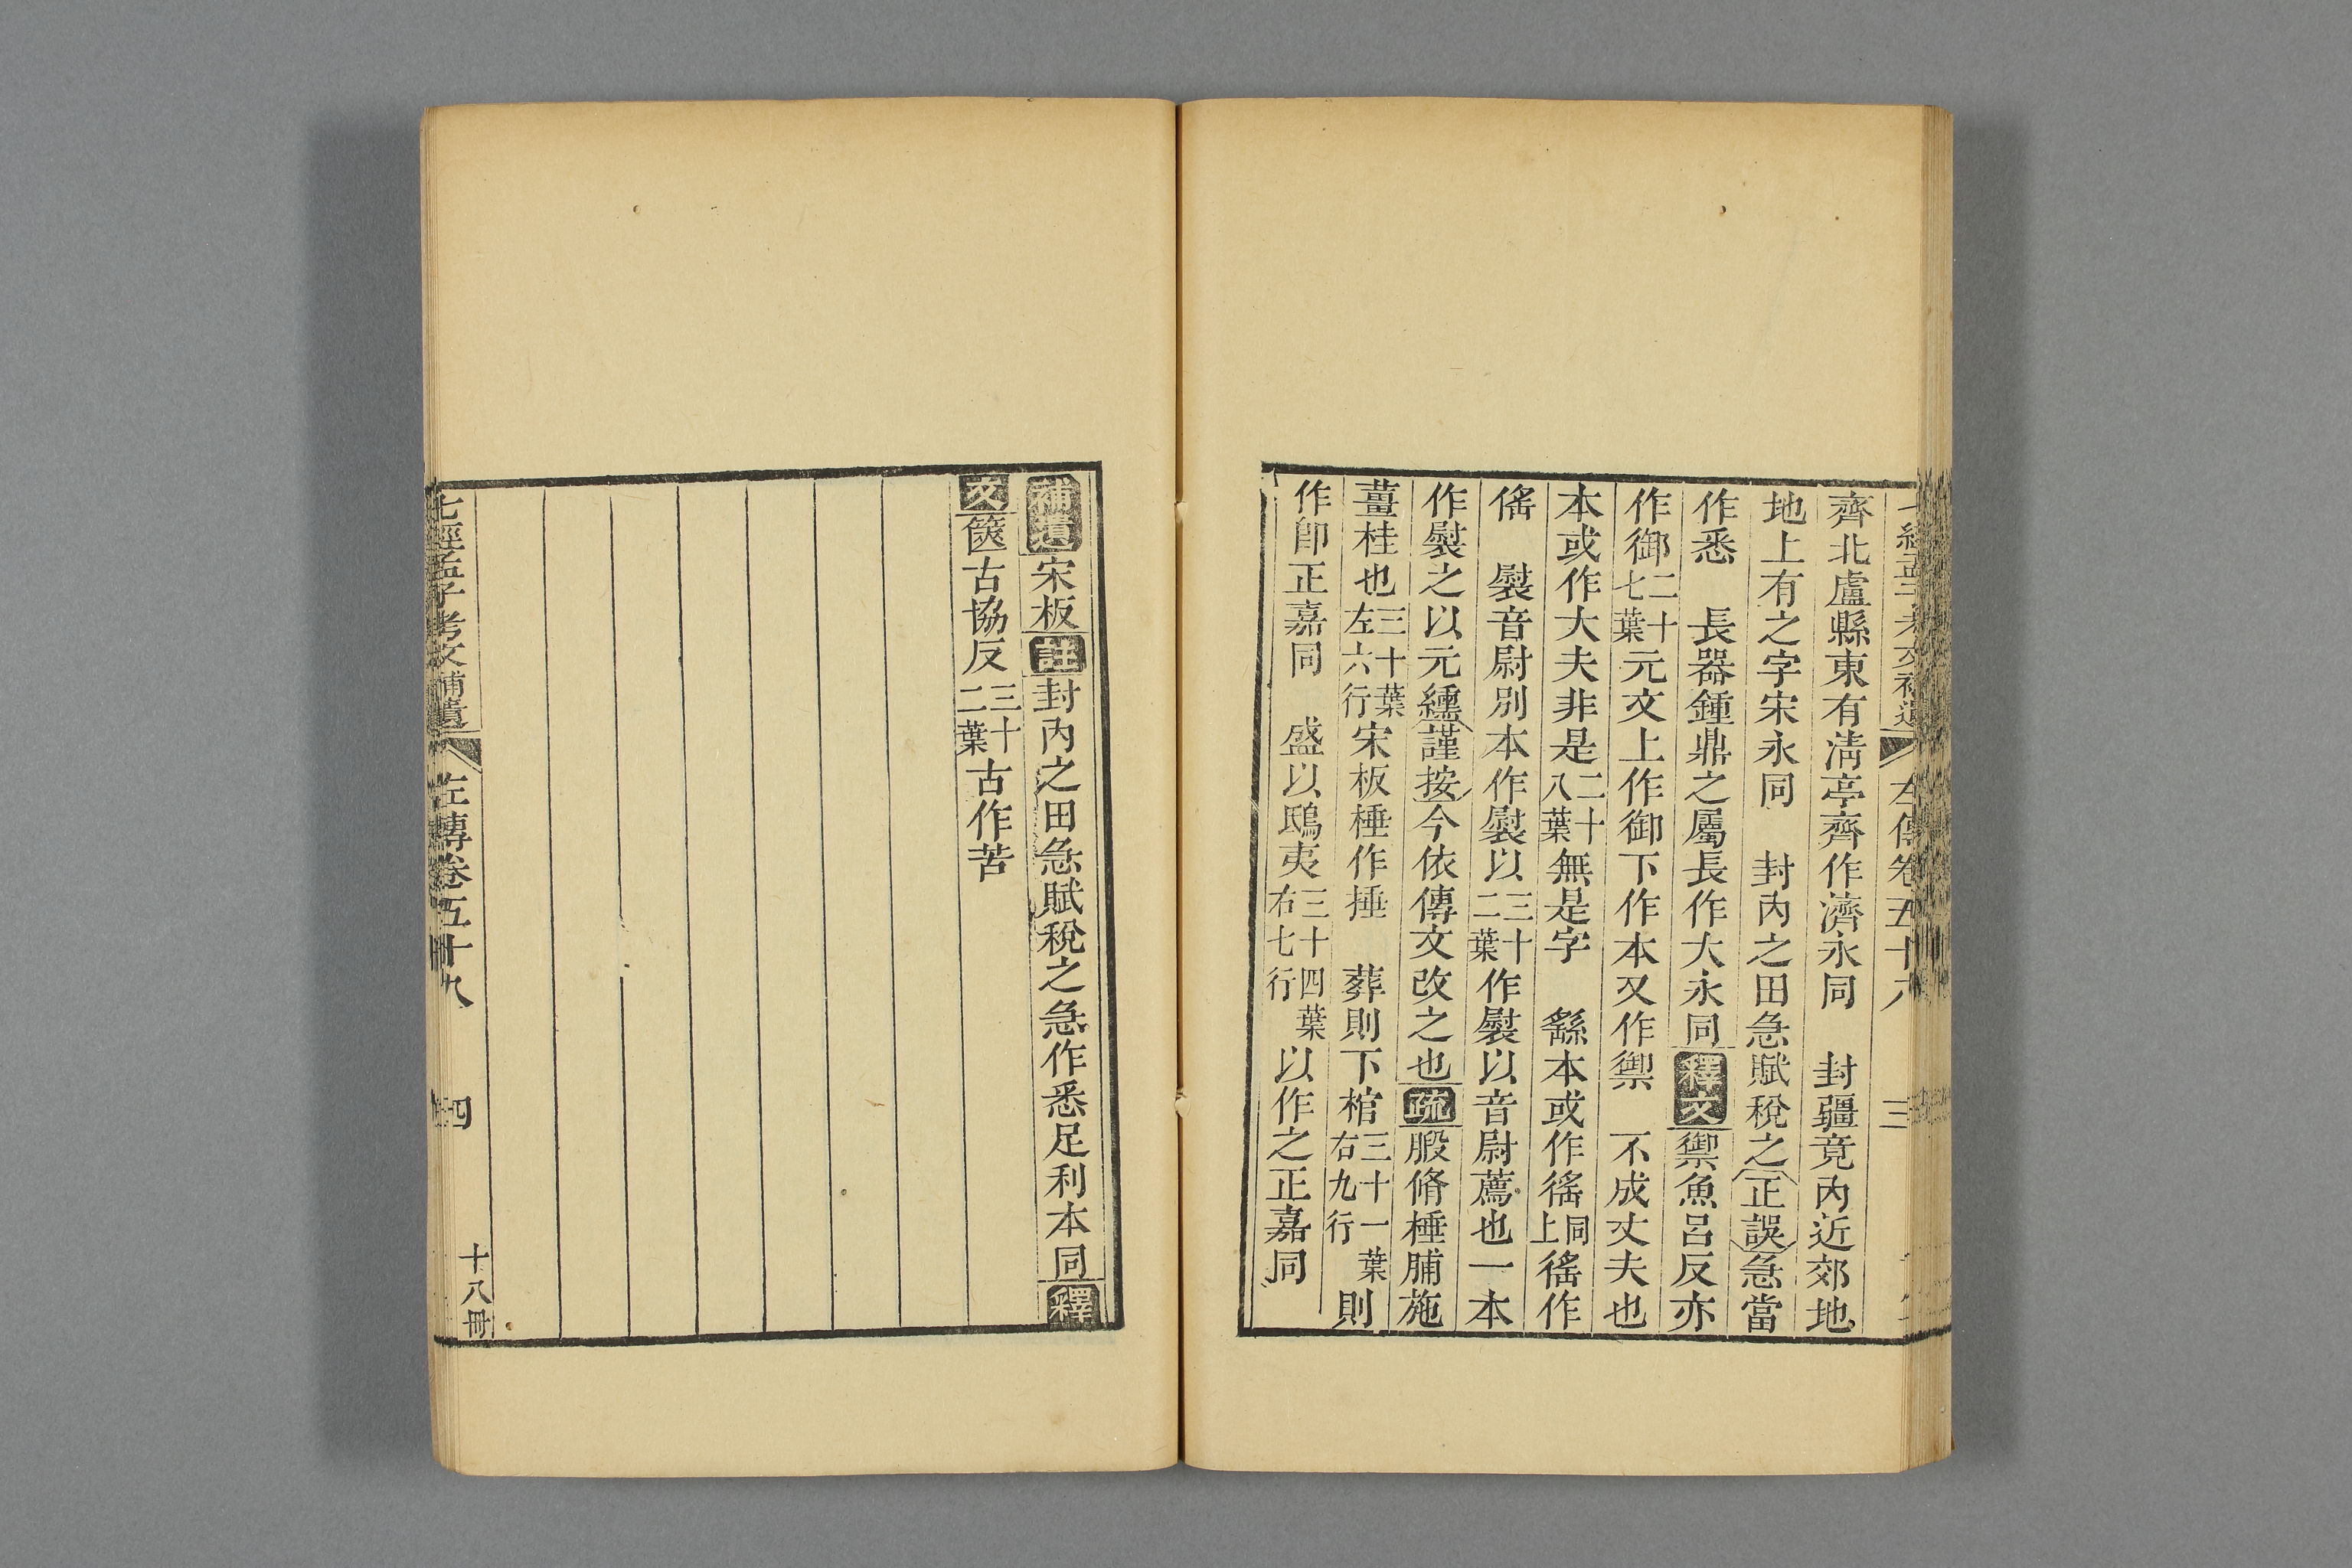 齊北盧縣東有淸亭齊作濟永同　封疆竟內近郊地
地上有之字宋永同　封內之田急賦稅之正誤急當
作悉　長器鍾鼎之屬長作大永同釋文禦魚呂反亦
作御二十七葉元文上作御下作本又作禦　不成丈夫也
本或作大夫非是二十八葉無是字　繇本或作徭同上徭作
傜　熨音尉別本作熨以三十二葉作熨以音尉薦也一本
作熨之以元纁謹按今依傳文改之也疏腶脩棰脯施
薑桂也三十葉左六行宋板棰作捶　葬則下棺三十一葉右九行則
作卽正嘉同　盛以鴟夷三十四葉右七行以作之正嘉同
左傳卷五十
三
補遺宋板註封內之田急賦稅之急作悉足利本同釋
文篋古協反三十二葉古作苦
七經孟子考文補遺　左傳卷五十九　四　十八冊